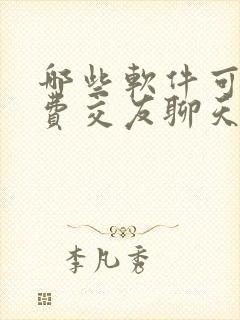 哪些軟件可
費交友聊天
李凡秀